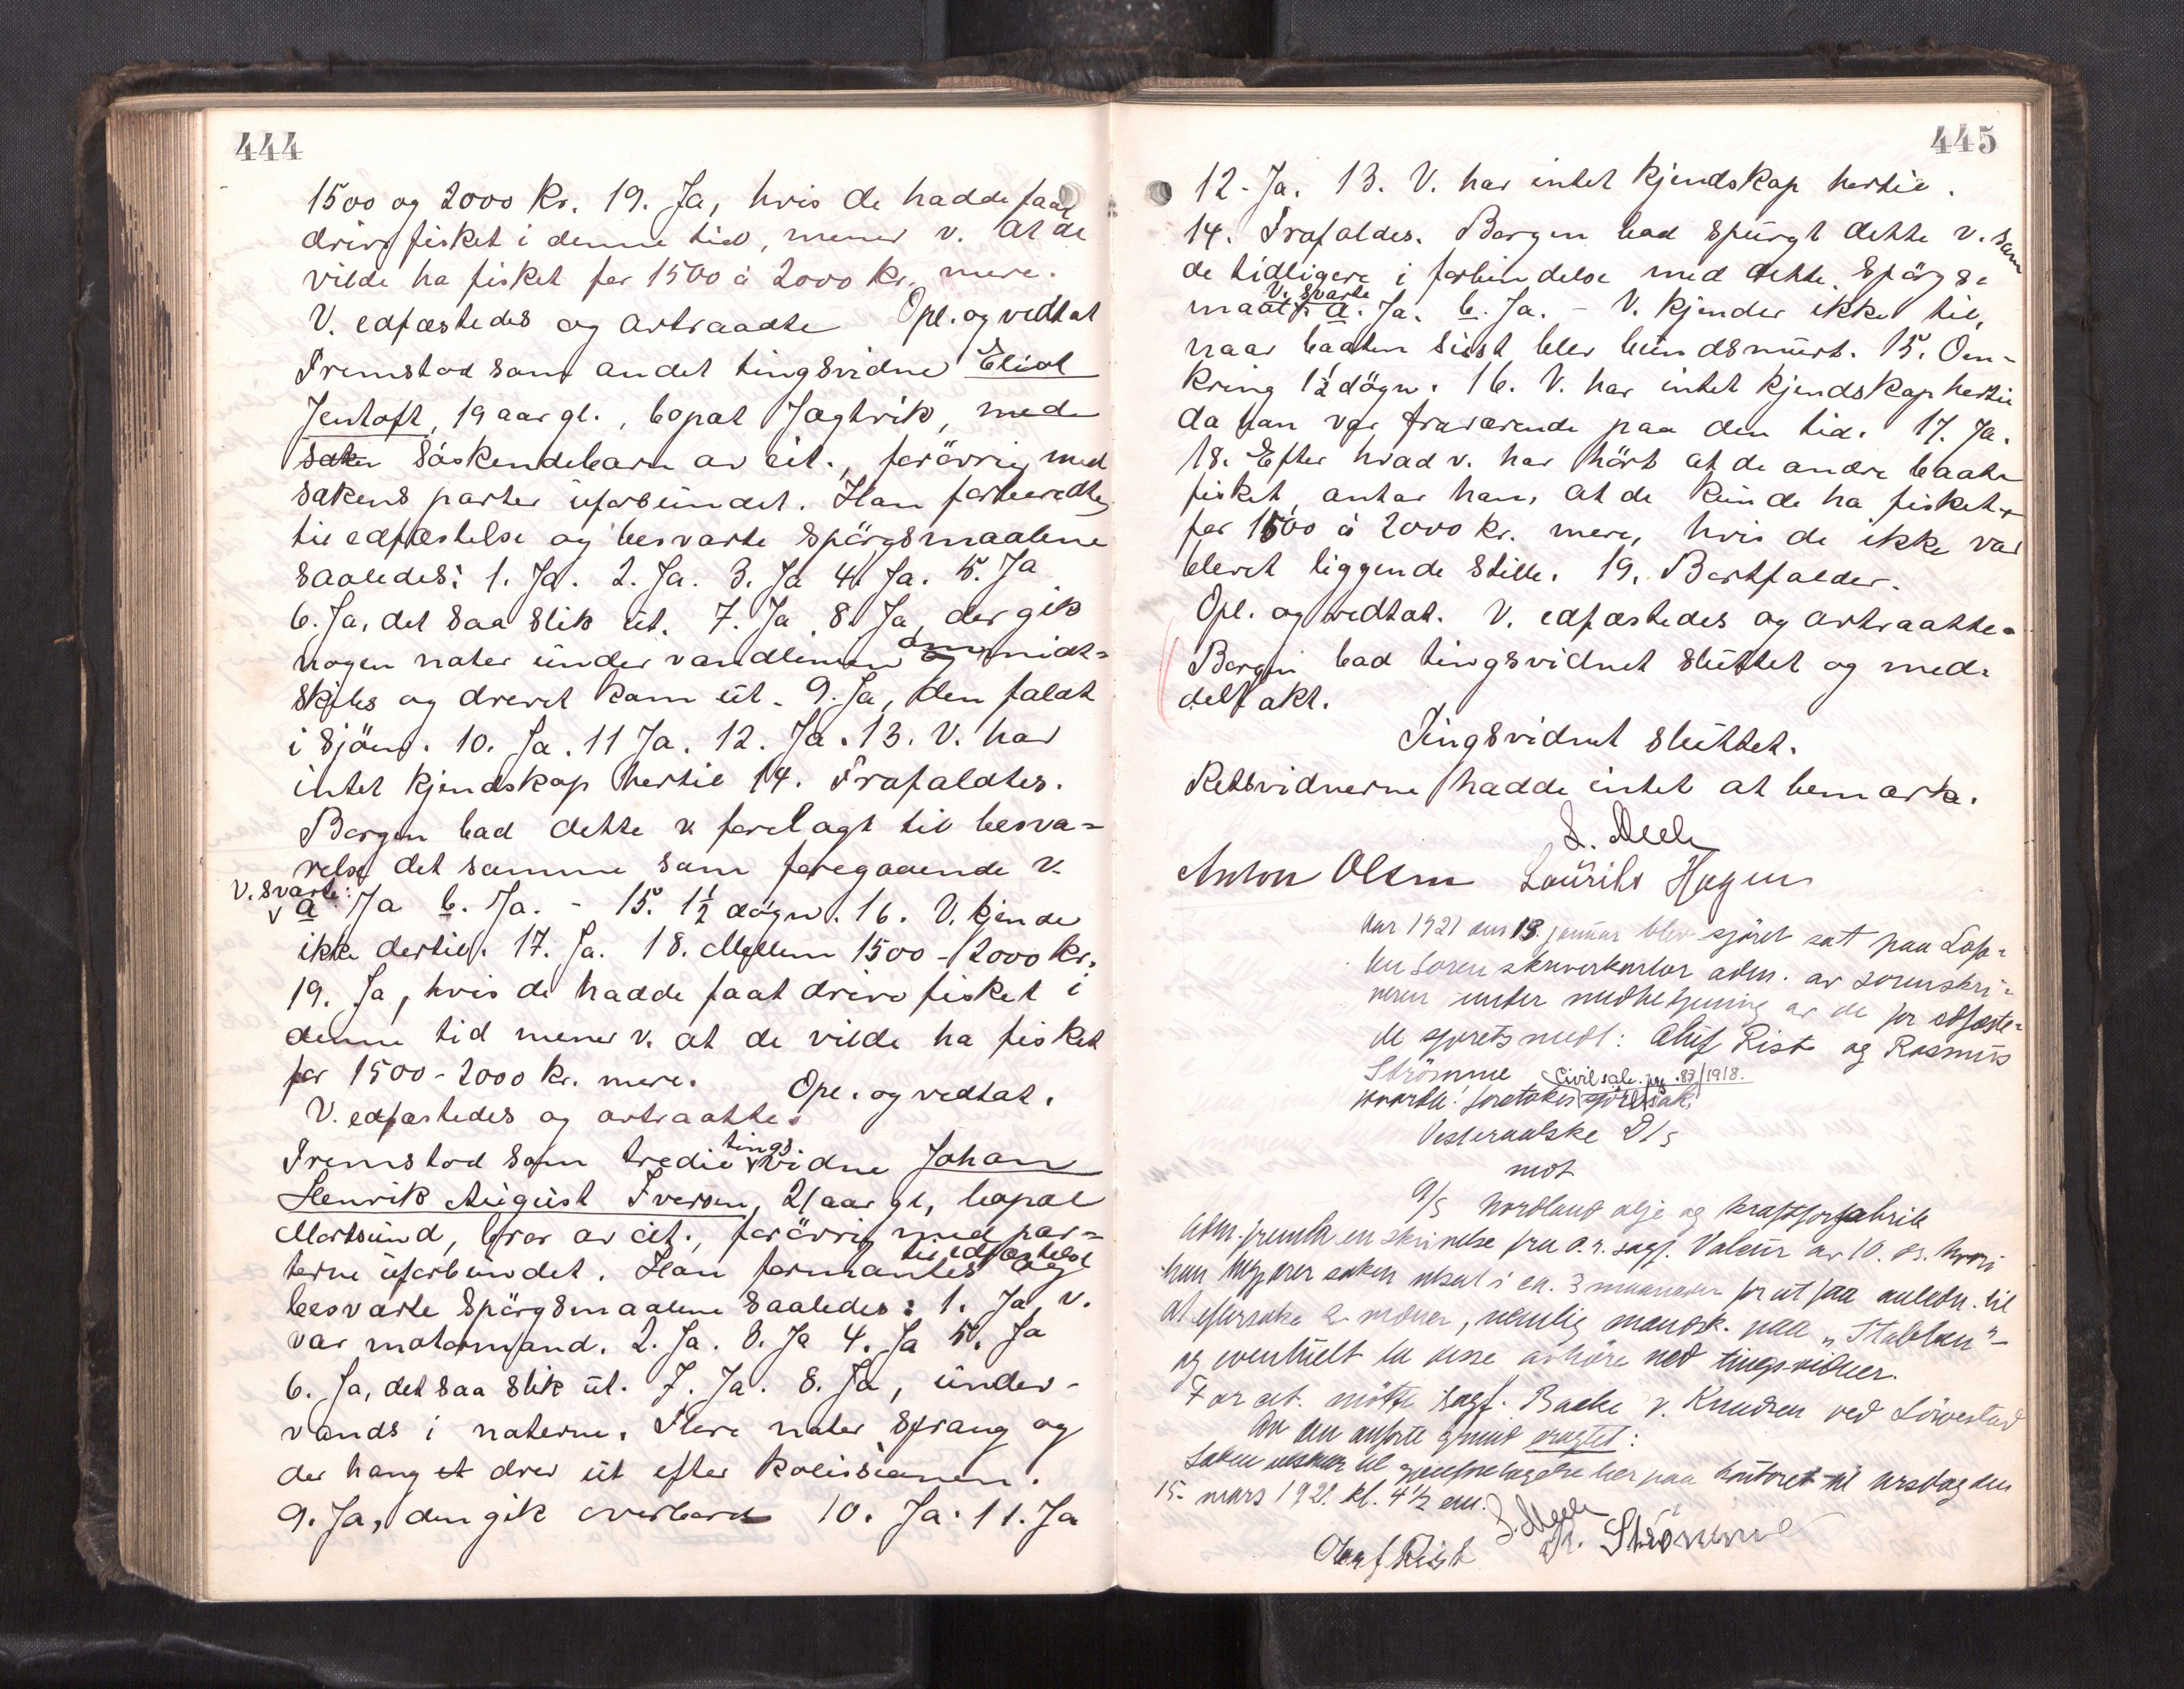 444
1500 og 2000 kr. 19. Ja, hvis de hadde faat
drive fisket i denne tid, mener v. at de
vilde ha fisket for 1500 à 2000 kr. mere.
V. edfæstedes og avtraadte Opl. og vedtat
Fremstod som andet tingsvidne Eliot
Jentoft, 19 aar gl., bopæl Jagtvik, med
saken söskendebarn av cit., forövrig med
sakens parter uforbundet. Han forberedtes
til edfæstelse og besvarte spörgsmaalene
saaledes: 1. Ja. 2. Ja. 3. Ja 4. Ja. 5. Ja
6. Ja, det saa slik ut. 7. Ja 8. Ja, der gik
nogen nater under vandlinien om midt-
skibs og drevet kom ut. 9. Ja, den faldt
i sjöen. 10. Ja. 11 Ja. 12. Ja. 13. V. har
intet kjendskap hertil 14. Frafaldtes.
Borgen bad dette v. forelagt til besva-
relse det samme som foregaaende v.
V. svarte:
a Ja b. Ja. - 15. 1½ dögn. 16. V. kjende
ikke dertil. 17. Ja. 18. Mellem 1500 - 2000 kr.
19. Ja, hvis de hadde faat drive fisket i
denne tid mener v. at de vilde ha fisket
for 1500-2000 kr. mere.
Opl. og vedtat.
V. edfæstedes og avtraatte.
Fremstod som tredie tings vidne Johan
Henrik August Iversen, 21 aar gl, bopæl
Mortsund, bror av cit., forövrig med par-
terne uforbundet. Han formantes til edfæstelse og
besvarte spörgsmaalene saaledes: 1. Ja, v.
var motormand. 2. Ja. 3. Ja 4. Ja 5. Ja
6. Ja, det saa slik ut. 7. Ja. 8. Ja, under-
vands i naterne. Flere nater sprang og
der hang et drev ut efter kolissionen.
9. Ja, den gik overbord 10. Ja. 11. Ja
445
12. Ja. 13. V. har intet kjendskap hertil.
14. Frafaldes. Borgen bad spurgt dette v. som
de tidligere i forbindelse med dette spörgs-
maal: V. svarte a. Ja. b. Ja. - V. kjender ikke til,
naar baaten sidst blev bundsmurt. 15. Om-
kring 1½ dögn. 16. V. har intet kjendskap hertil
da han var fraværende paa den tid. 17. Ja.
18. Efter hvad v. har hört at de andre baate
fisket, antar han, at de kunde ha fisket
for 1500 à 2000 kr. mere, hvis de ikke var
blevet liggende stille. 19. Bortfalder.
Opl. og vedtat. V. edfæstedes og avtraatte.
Borgen bad tingsvidnet sluttet og med-
delt akt.
Tingsvidnet sluttet.
Retsvidnerne hadde intet at bemærke.
Anton Olsen Laurits Hagen
Aar 1921 den 18. januar blev sjöret sat paa Lofo-
ten sorenskriverkontor adm. av sorenskri-
veren under medbetjening av de för edfæste-
de sjoretsmedl: Oluf Rist og Rasmus
Strömme
Civilsak. 87/1918.
hvorda: foretokes sjöretssak:
Vesteraalske D/s
mot
A/S Nordland olje og kraftforfabrik
Adm. fremla en skrivelse fra o.r. sagf. Valeur av 10. ds. hvori
han begjærer saken utsat i ca. 3 maaneder forat faa anledn. til
at eftersøke 2 vidner, nemlig mandsk. paa „Stabben"-
og eventuelt la disse avhöre ved tingsvidner.
For cit. mötte sagf. Backe v. Knudsen ved Lövestad
Av den anförte grund eragtet:
Saken utsættes til gjenforetagelse her paa kontoret til tirsdag den
15. mars 1921. kl. 4½ em.
Oluf Rist R. Strömme